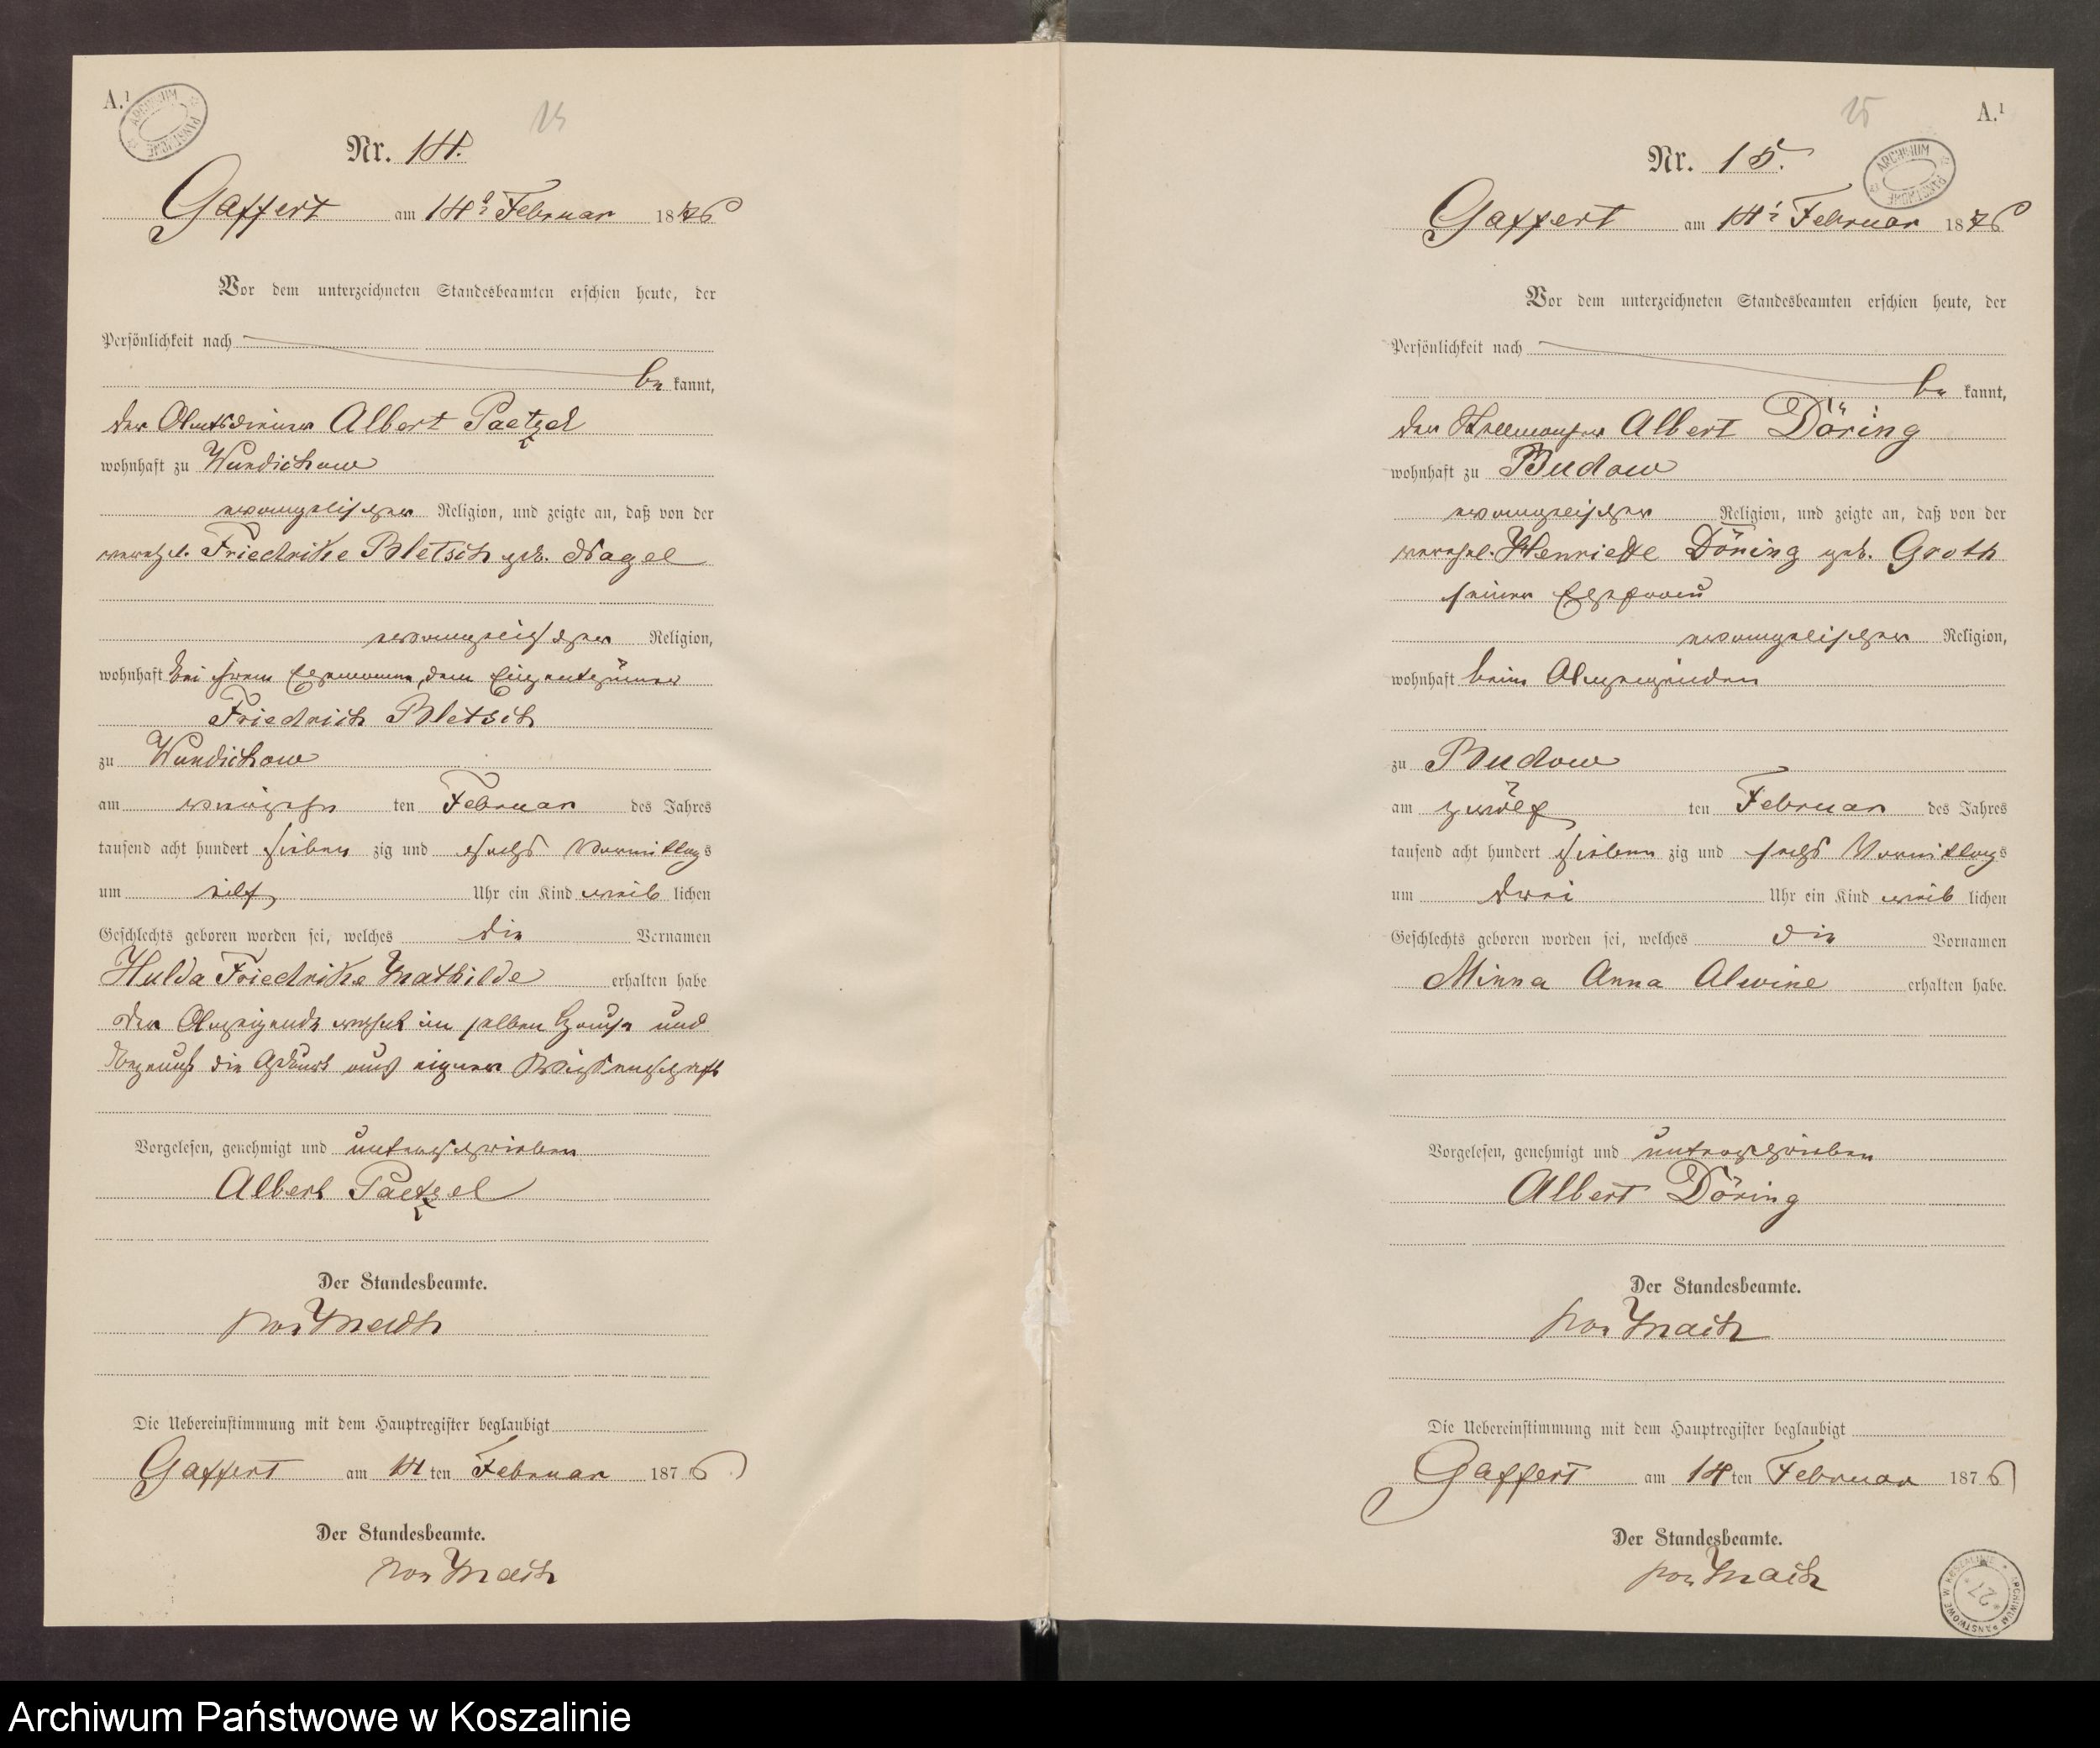 A.¹
ARCHIWUM PAŃSTWOWE
14
Nr. 14.
Gaffert am 14t Februar 1876
Vor dem unterzeichneten Standesbeamten erschien heute, der
Persönlichkeit nach
be kannt,
der Amtsdiener Albert Paetzel
wohnhaft zu Wundichow
evangelischer Religion, und zeigte an, daß von der
verehel. Friedrike Bletsch geb. Nagel
evangelischer Religion,
wohnhaft bei ihrem Ehemanne, dem Eigenthümer
Friedrich Bletsch
zu Wundichow
am ten Februar des Jahres
tausend acht hundert sieben zig und sechs Vormittags
um elf Uhr ein Kind weib lichen
Geschlechts geboren worden sei, welches die Vornamen
Hulda Friedrike Mathilde erhalten habe
Der Anzeigende wohnt im selben Hause und
die Geburt aus eigener Wissenschaft
Vorgelesen, genehmigt und unterschrieben
Albert Paetzel
Der Standesbeamte.
von
Die Uebereinstimmung mit dem Hauptregister beglaubigt
Gaffert am 14 ten Februar 1876
Der Standesbeamte.
von
15
A.¹
Nr. 15.
ARCHIWUM PAŃSTWOWE
Gaffert am 14t Februar 1876
Vor dem unterzeichneten Standesbeamten erschien heute, der
Persönlichkeit nach
be kannt,
der Albert Döring
wohnhaft zu Budow
evangelischer Religion, und zeigte an, daß von der
verehel. Henriette Döring geb. Groth
seiner Ehefrau
evangelischer Religion,
wohnhaft beim Anzeigenden
zu Budow
am zwölf ten Februar des Jahres
tausend acht hundert sieben zig und sechs Vormittags
um drei Uhr ein Kind weib lichen
Geschlechts geboren worden sei, welches die Vornamen
Minna Anna Alwine erhalten habe.
Vorgelesen, genehmigt und unterschrieben
Albert Döring
Der Standesbeamte.
von
Die Uebereinstimmung mit dem Hauptregister beglaubigt
Gaffert am 14 ten Februar 1876
Der Standesbeamte.
von
ARCHIWUM PAŃSTWOWE W KOSZALINIE
27
Archiwum Państwowe w Koszalinie